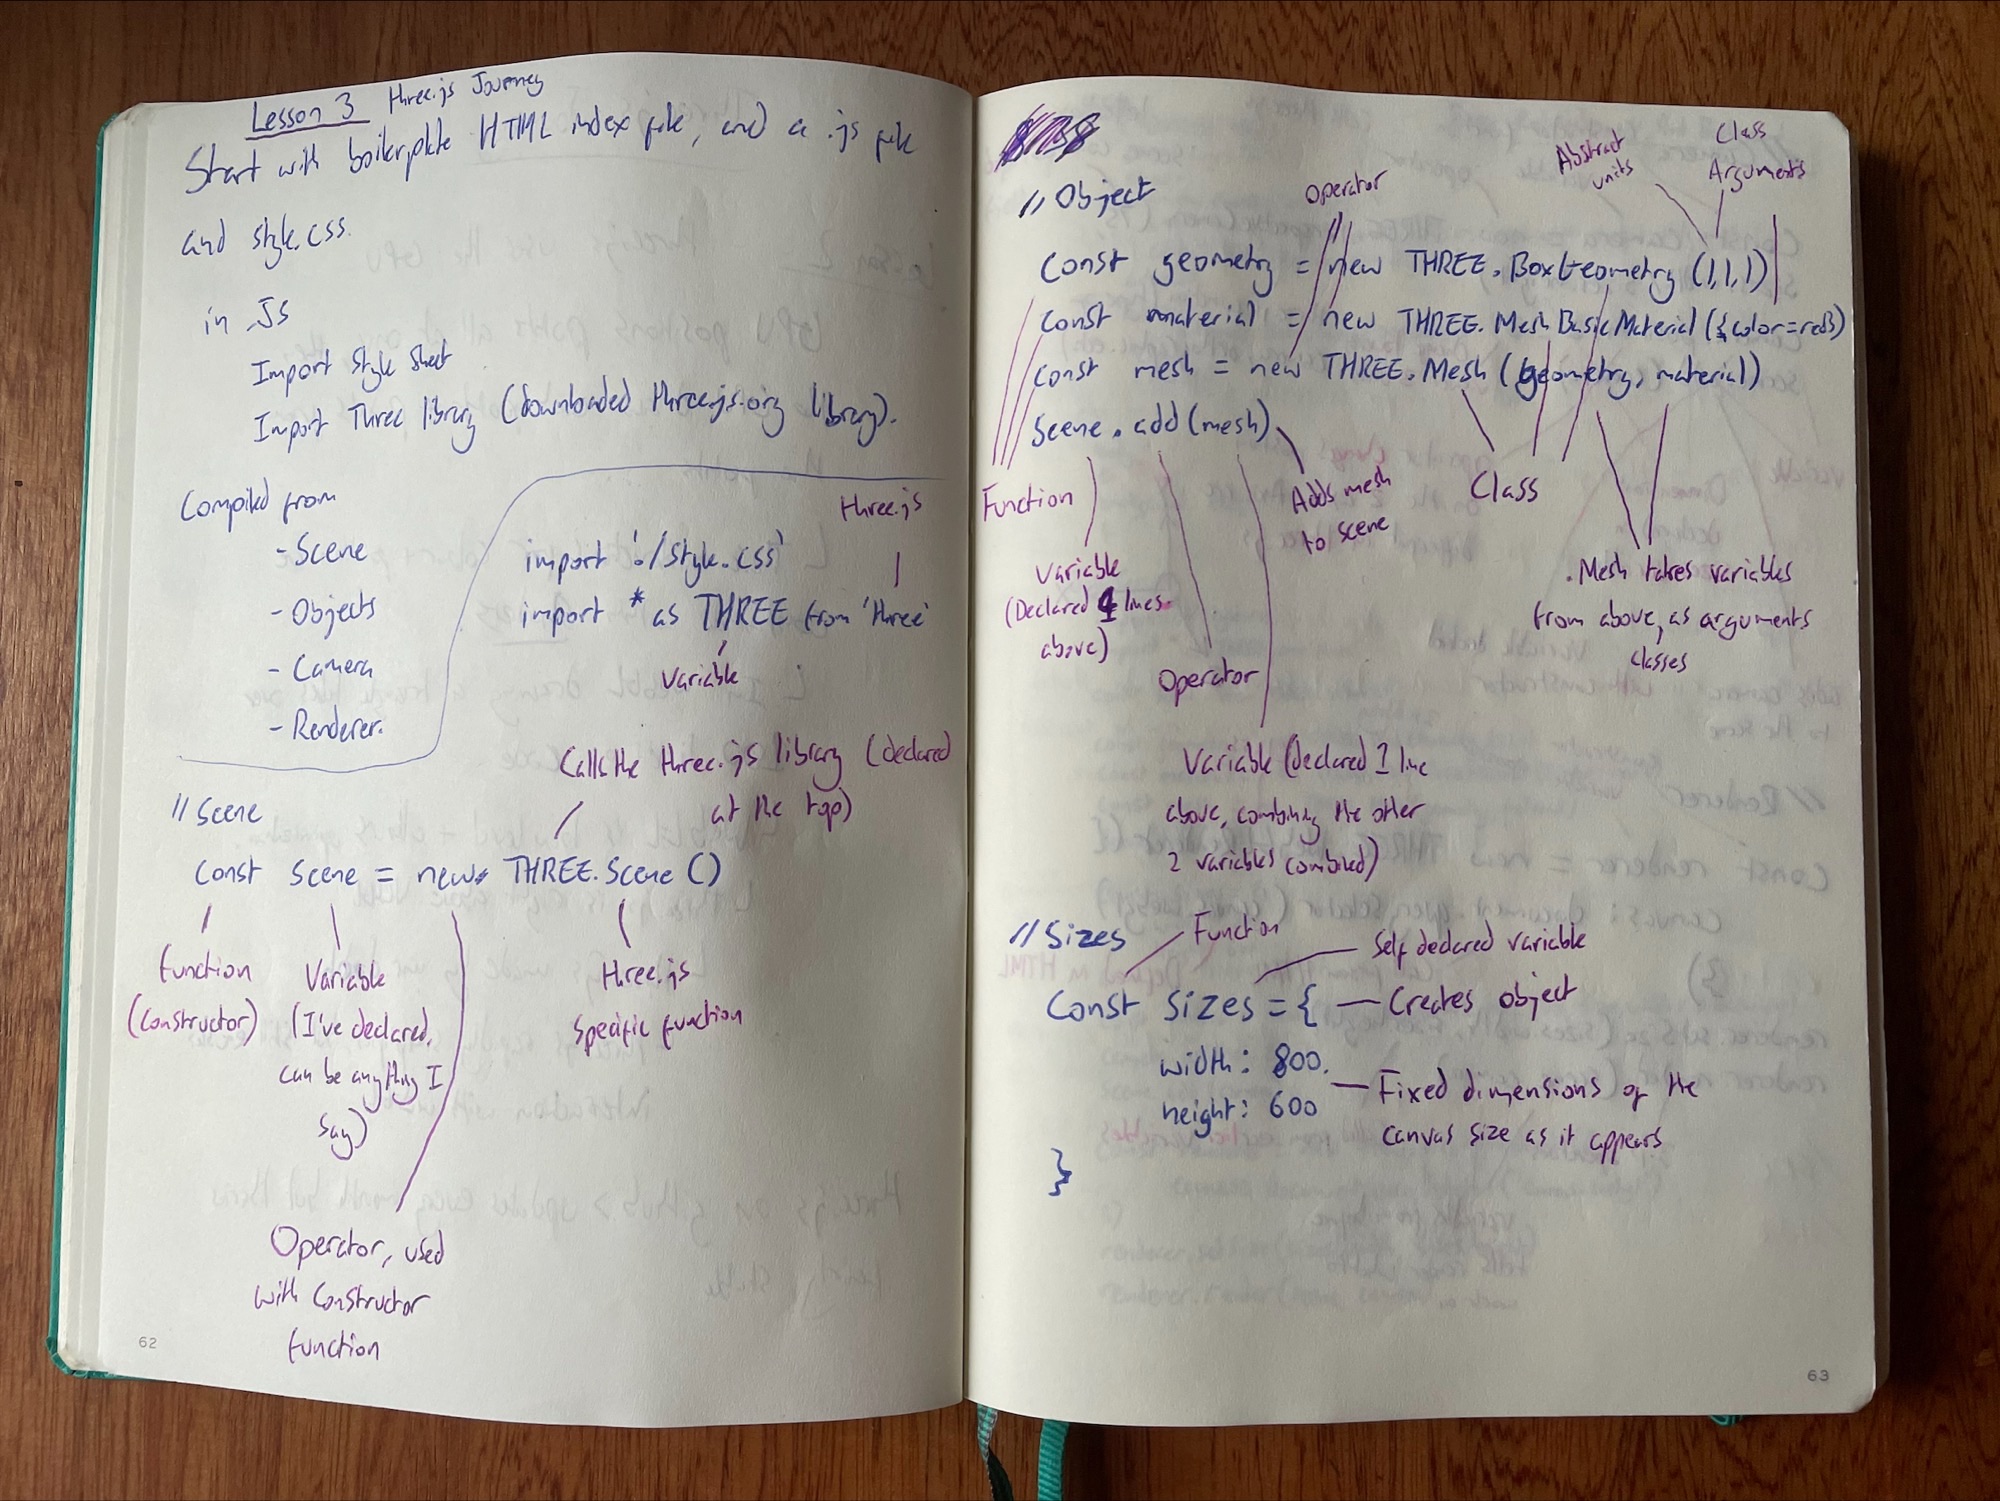 Lesson 3 three.js Journey
Start with boilerplate HTML index file, and a .js file
and style.css.
in JS
Import Style Sheet
Import Three library (downloaded threejs.org library).
Compiled from
- Scene
- Objects
- Camera
- Renderer.
three.js
import './style.css'
import * as THREE from 'three'
Variable
Calls the three.js library (declared
at the top)
// Scene
Const scene = new THREE.Scene ()
Function
(constructor)
Variable
(I've declared,
can be anything I
say)
three.js
specific function
Operator, used
with constructor
function
62
// Object
Operator
Abstract
units
Class
Arguments
Const geometry = new THREE.BoxGeometry (1,1,1)
Const material = new THREE.MeshBasicMaterial({color=red})
Const mesh = new THREE.Mesh (geometry, material)
Scene.add(mesh)
Function
Variable
(Declared 4 lines
above)
Operator
Adds mesh
to scene
Class
. Mesh takes variables
from above, as arguments
classes
Variable (declared 1 line
above, combining the other
2 variables combined)
// Sizes
Function
Self declared variable
Const sizes = { — Creates object
width: 800,
height: 600
— Fixed dimensions of the
canvas size as it appears
}
63